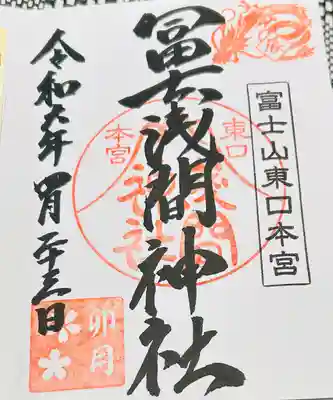 富士山東口本宮
冨士浅間神社
東口
本宮
令和六年四月二十三日
卯月